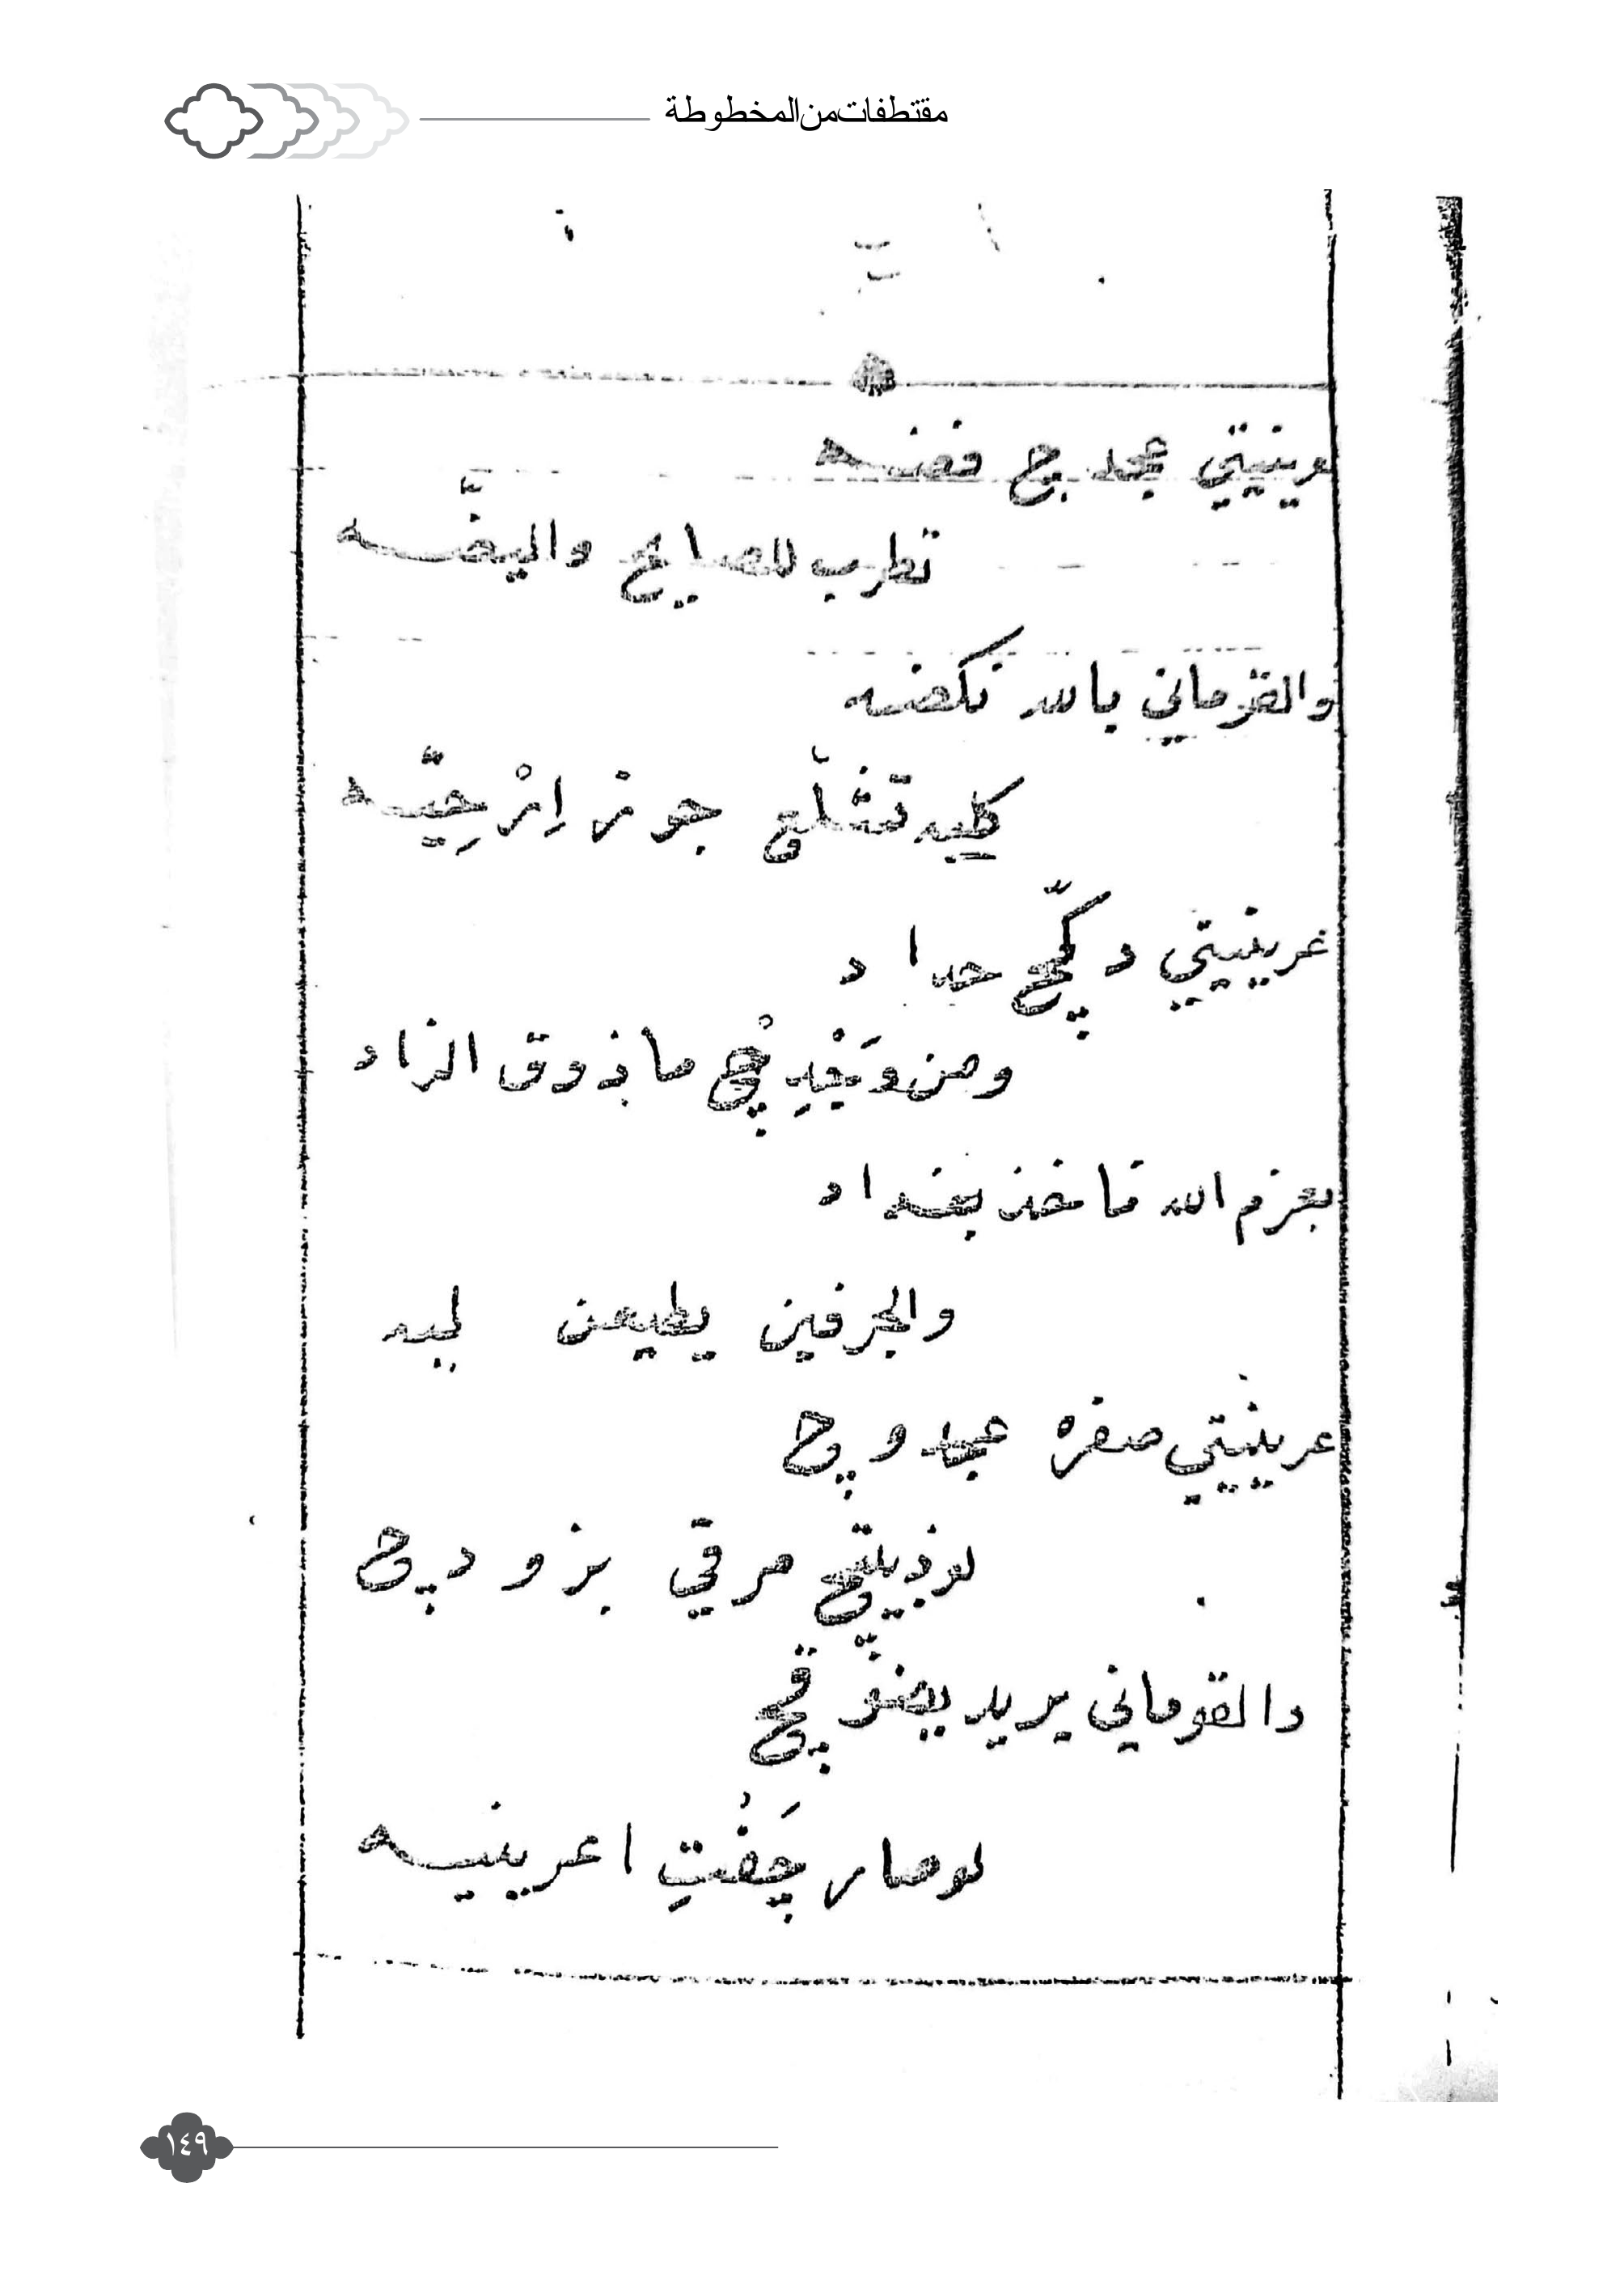 مقتطفات من المخطوطة
عرينيتي عجد چ فضه
تطرب للصايح واليضّه
والقرماني بالله نكضه
كليه تشلّع جوز ارْحِيّه
عرينيتي دكّچ حداد
ومن وَغْدِچْ ما ذوق الزاد
بعزم الله ناخذ بغداد
والجرفين يطيعن ليه
عرينيتي صفره عجد وچ
لو ذيتچ مرقي بزودچ
دالقوماني يريد يضوّقچ
لوصار چَفْتِ اعرينيه
١٤٩